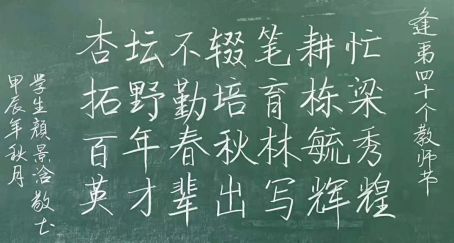 逢第四十个教师节
杏坛不辍笔耕忙
拓野勤培育栋梁
百年春秋林毓秀
英才辈出写辉煌
学生顏景浛敬
甲辰年秋月